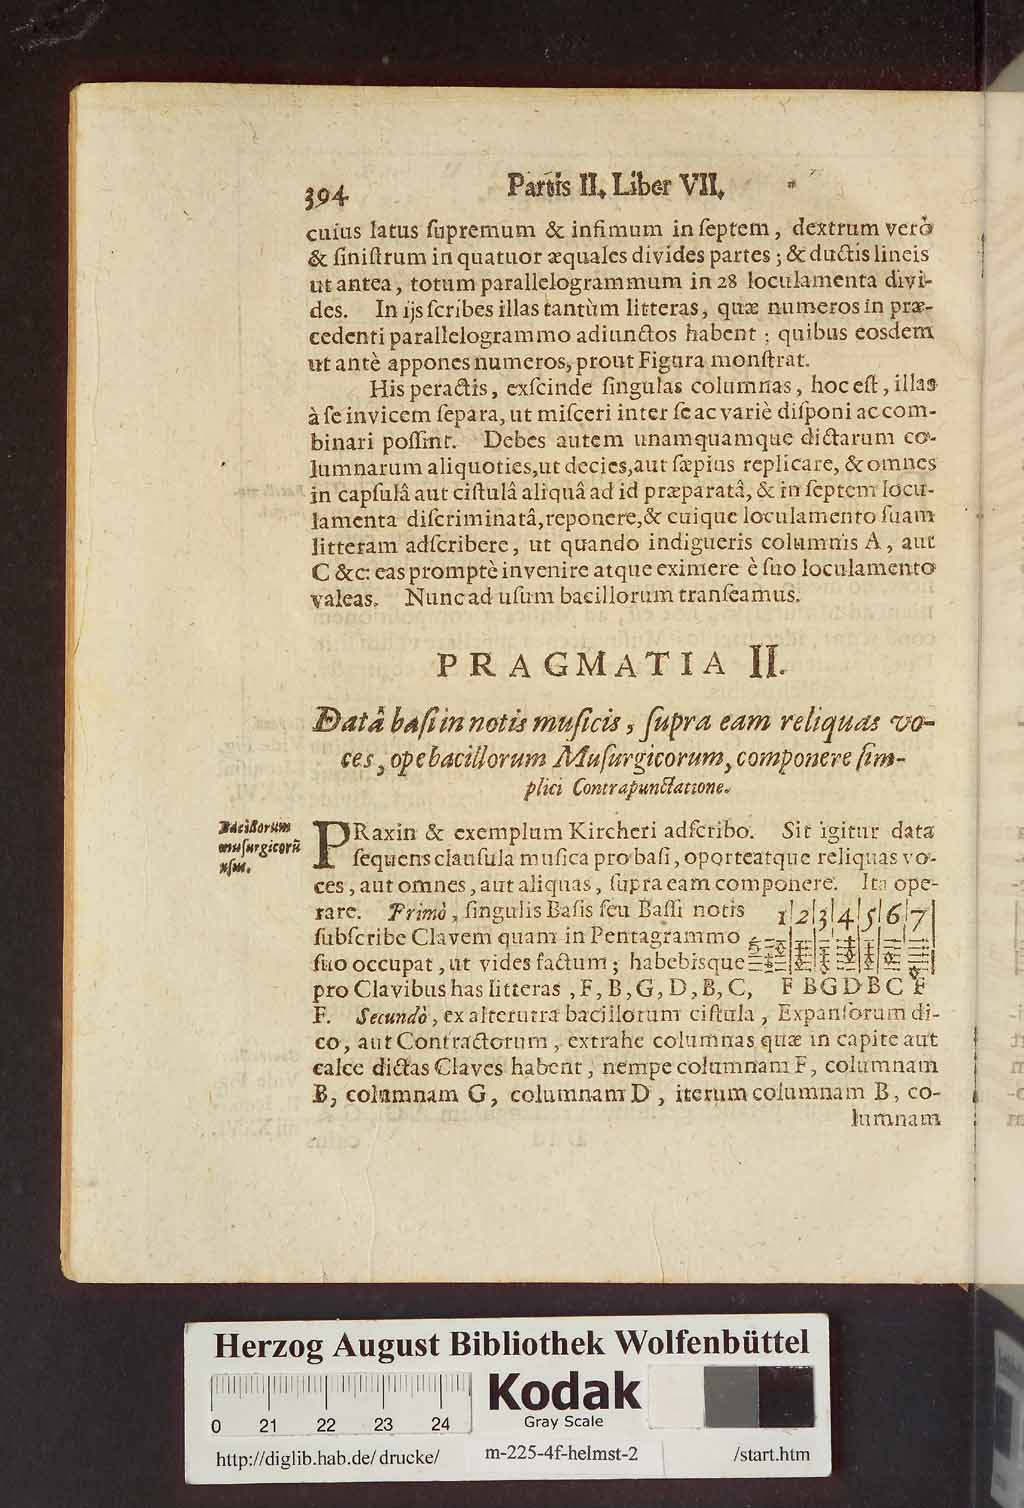 394 Partis II. Liber VII.
cuius latus ſupremum & infimum in ſeptem, dextrum verò
& ſiniſtrum in quatuor æquales divides partes; & ductis lineis
ut antea, totum parallelogrammum in 28 loculamenta divi-
des. In ijs ſcribes illas tantùm litteras, quæ numeros in præ-
cedenti parallelogrammo adiunctos habent; quibus eosdem
ut antè appones numeros, prout Figura monſtrat.
His peractis, exſcinde ſingulas columnas, hoc eſt, illas
à ſe invicem ſepara, ut miſceri inter ſe ac variè diſponi ac com-
binari poſſint. Debes autem unamquamque dictarum co-
lumnarum aliquoties, ut decies, aut ſæpius replicare, & omnes
in capſulâ aut ciſtulâ aliquâ ad id præparatâ, & in ſeptem locu-
lamenta diſcriminatâ, reponere, & cuique loculamento ſuam
litteram adſcribere, ut quando indigueris columnis A, aut
C &c: eas promptè invenire atque eximere è ſuo loculamento
valeas. Nunc ad uſum bacillorum tranſeamus.
PRAGMATIA II.
Datâ baſi in notis muſicis, ſupra eam reliquas vo-
ces, ope bacillorum Muſurgicorum, componere ſim-
plici Contrapunctatione.
Bacillorum
muſurgicorū
uſus.
PRaxin & exemplum Kircheri adſcribo. Sit igitur data
ſequens clauſula muſica pro baſi, oporteatque reliquas vo-
ces, aut omnes, aut aliquas, ſupra eam componere. Ita ope-
rare. Primò, ſingulis Baſis ſeu Baſſi notis 1 2 3 4 5 6 7
ſubſcribe Clavem quam in Pentagrammo
ſuo occupat, ut vides factum; habebisque
pro Clavibus has litteras, F, B, G, D, B, C, F B G D B C F
F. Secundò, ex alterutra bacillorum ciſtula, Expanſorum di-
co, aut Contractorum, extrahe columnas quæ in capite aut
calce dictas Claves habent, nempe columnam F, columnam
B, columnam G, columnam D, iterum columnam B, co-
lumnam
Herzog August Bibliothek Wolfenbüttel
Kodak
Gray Scale
0 21 22 23 24
http://diglib.hab.de/drucke/ m-225-4f-helmst-2 /start.htm